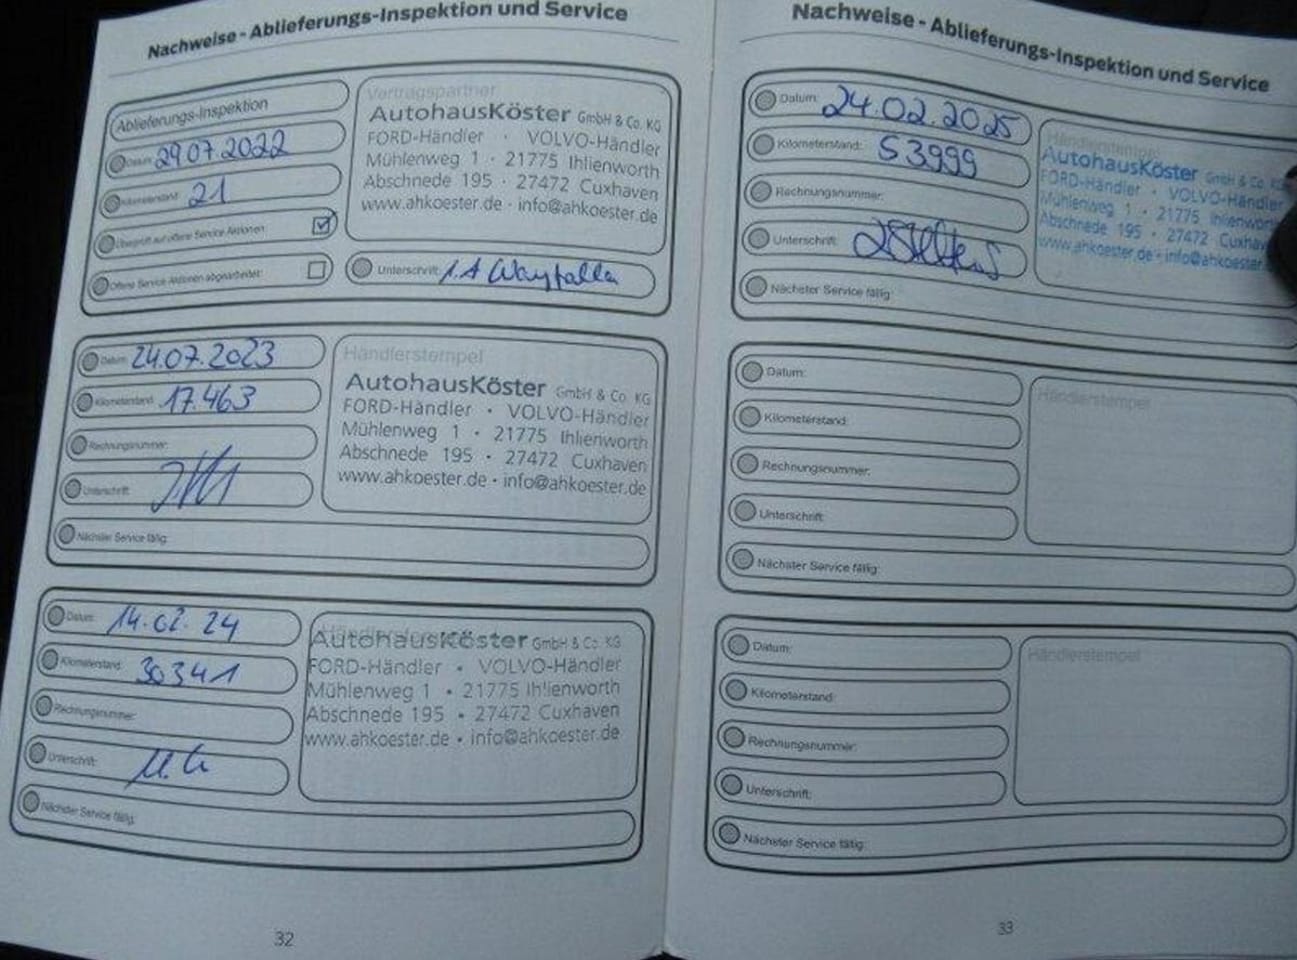 Nachweise - Ablieferungs-Inspektion und Service
Ablieferungs-Inspektion
Datum: 29.07.2022
Kilometerstand: 21
Überprüft auf offene Service Aktionen
Offene Service Aktionen abgearbeitet:
Vertragspartner
AutohausKöster GmbH & Co. KG
FORD-Händler · VOLVO-Händler
Mühlenweg 1 · 21775 Ihlienworth
Abschnede 195 · 27472 Cuxhaven
www.ahkoester.de · info@ahkoester.de
Unterschrift: i.A
Datum: 24.07.2023
Kilometerstand: 17.463
Rechnungsnummer:
Unterschrift:
Nächster Service fällig:
Händlerstempel
AutohausKöster GmbH & Co. KG
FORD-Händler · VOLVO-Händler
Mühlenweg 1 · 21775 Ihlienworth
Abschnede 195 · 27472 Cuxhaven
www.ahkoester.de · info@ahkoester.de
Datum: 14.02.24
Kilometerstand: 30341
Rechnungsnummer:
Unterschrift:
Nächster Service fällig:
Händlerstempel
AutohausKöster GmbH & Co. KG
FORD-Händler · VOLVO-Händler
Mühlenweg 1 · 21775 Ihlienworth
Abschnede 195 · 27472 Cuxhaven
www.ahkoester.de · info@ahkoester.de
32
Nachweise - Ablieferungs-Inspektion und Service
Datum: 24.02.2025
Kilometerstand: 53999
Rechnungsnummer:
Unterschrift:
Nächster Service fällig:
Händlerstempel
AutohausKöster GmbH & Co. K
FORD-Händler · VOLVO-Händler
Mühlenweg 1 · 21775 Ihlienwort
Abschnede 195 · 27472 Cuxha
www.ahkoester.de · info@ahkoester.
Datum:
Kilometerstand:
Rechnungsnummer:
Unterschrift:
Nächster Service fällig:
Händlerstempel
Datum:
Kilometerstand:
Rechnungsnummer:
Unterschrift:
Nächster Service fällig:
Händlerstempel
33